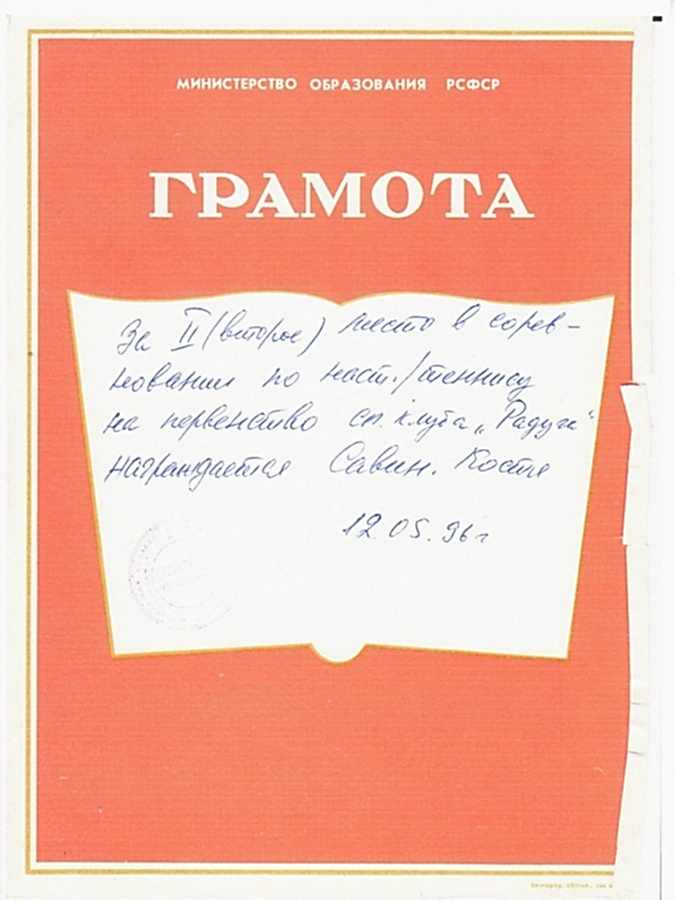 МИНИСТЕРСТВО ОБРАЗОВАНИЯ РСФСР
ГРАМОТА
За II (второе) место в сорев-
новании по наст./теннису
на первенство сп. клуба „Радуга“
награждается Савин. Костя
12.05.96 г